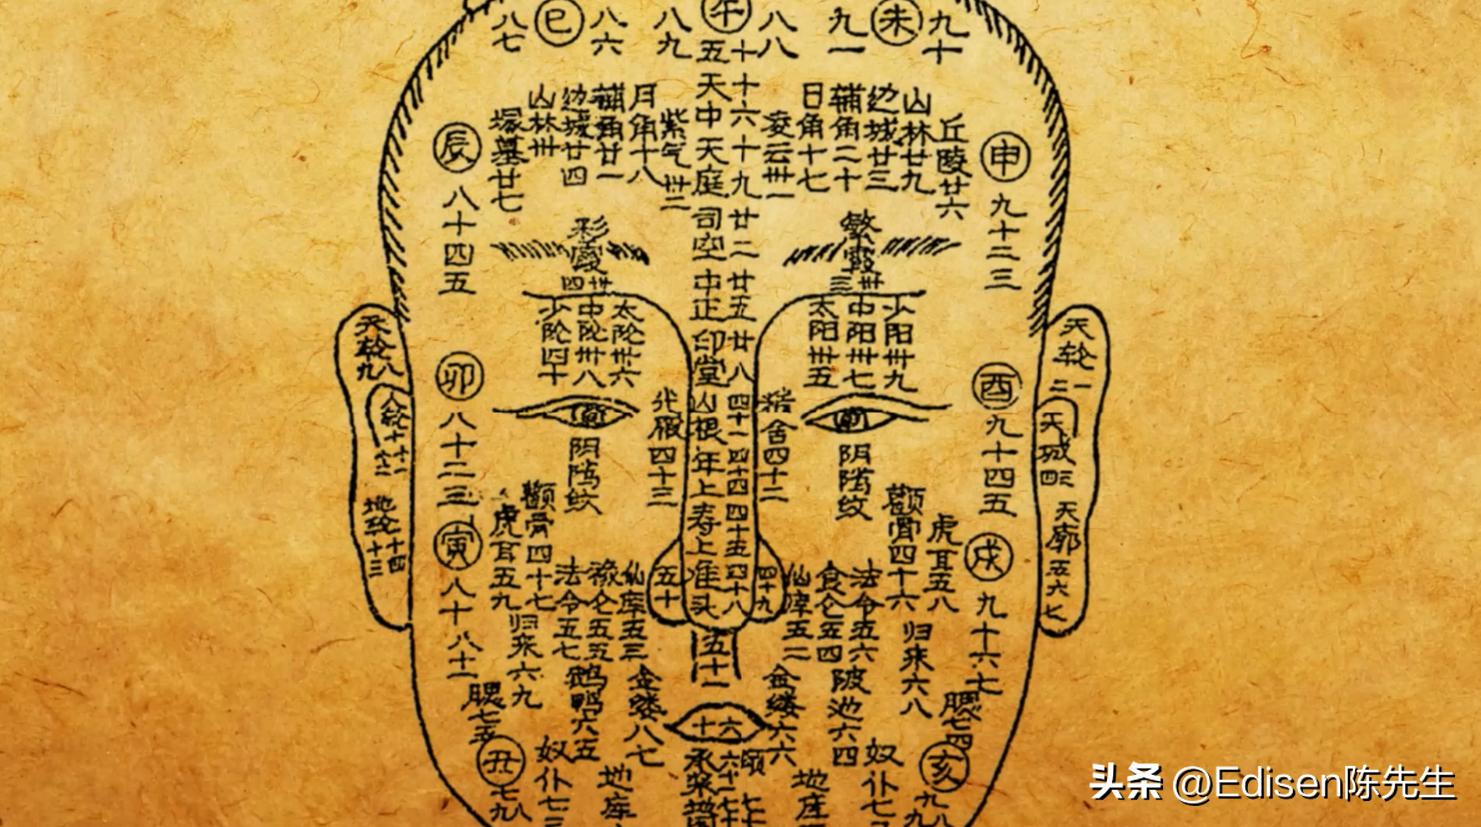 八七
巳
八六
八九
午
八八
九一
未
九十
五天中天庭司空中正印堂山根年上寿上准头
十十六十九廿二廿五廿八四十一四十四四十五四十八
辰
八十四五
塚墓廿七
山林卅
边城廿四
辅角廿一
月角十八
紫气卅二
凌云卅一
日角十七
辅角二十
边城廿三
山林廿九
丘陵廿六
申
九十二三
彩霞卅四
繁霞卅三
少阴四十
中阴卅八
太阴卅六
太阳卅五
中阳卅七
少阳卅九
天轮八九
人轮十十一十二
地轮十四十三
天轮一二
天城三四
天廓五六七
卯
八十二三
酉
九十四五
阴隲纹
四十三
精舍四十二
阴隲纹
寅
八十八十一
虎耳五九
颧骨四十七
颧骨四十六
虎耳五八
戌
九十六七
归来六九
法令五七
禄仓五五
仙库五三
五十
四十九
仙库五二
食仓五四
法令五六
归来六八
五十一
腮七五
鹅鸭六五
金缕六七
金缕六六
陂池六四
腮七四
六十
丑
七八
奴仆七三
地库
承浆
六十一
颂
地库
奴仆七二
亥
九八
头条 @Edisen陈先生